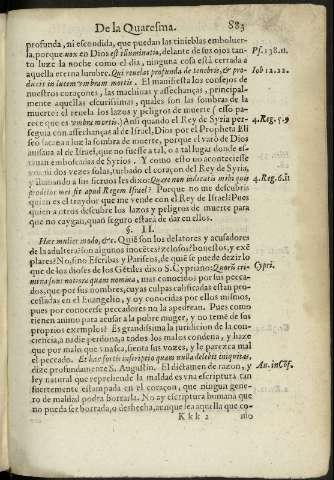 De la Quaresma. 883
profunda, ni escondida, que puedan las tinieblas emboluer-
la, porque nox en Dios est illuminatio, delante de sus ojos tan-
to luze la noche como el dia, ninguna cosa està cerrada a
aquella eterna lumbre. Qui reuelas profunda de tenebris, & pro-
ducis in lucem vmbram mortis. El manifiesta los consejos de
nuestros coraçones, las machinas y assechanças, principal-
mente aquellas escurissimas, quales son las sombras de la
muerte: el reuela los lazos y peligros de muerte (esso pa-
rece que es vmbra mortis.) Ansi quando el Rey de Syria per-
seguia con assechanças al de Israel, Dios por el Propheta Eli
seo sacaua a luz la sombra de muerte, porque el varõ de Dios
auisaua al de Israel, que no fuesse a tal, o a tal lugar donde
emboscadas de Syrios. Y como esto no aconteciesse
vna ni dos vezes solas, turbado el coraçon del Rey de Syria,
y llamando a sus sieruos les dixo: Quare non indicatis mihi quis
proditor mei sit apud Regem Israel? Porque no me descubris
quien es el traydor que me vende con el Rey de Israel: Pues
quien a otros descubre los lazos y peligros de muerte para
que no caygan, quan seguro estarà de dar en ellos.
§. II.
Hanc mulier modo, &c. Quiẽ son los delatores y acusadores
de la adultera? son algunos inocẽtes? zelosos? honestos, y exẽ
plares? No, sino Escribas y Pariseos, de quiẽ se puede dezir lo
que de los dioses de los Gẽtiles dixo S. Cypriano: Quorũ cri-
mina sunt notiora quam nomina, mas conocidos por sus pecca-
dos, que por sus nombres, cuyas culpas calificadas estàn pro-
cessadas en el Euangelio, y oy conocidas por ellos mismos,
pues por conocerse peccadores no la apedrean. Pues como
tienen animo para acusar a la pobre muger, y no temẽ de sus
proprios exemplos? Es grandissima la juridicion de la con-
ciencia, a nadie perdona, a todos los malos condena, y haze
que por mas que vna se a, sienta sus vozes, y le parezca mal
el peccado. Et hæc fortis inscriptio quam nulla delebit iniquitas,
dize profundamente S. Augustin. El dictamen de razon, y
ley natural que reprehende la maldad es vna escriptura tan
fuertemente estampada en el coraçon, que ningun gene-
ro de maldad podra borrarla. No ay escriptura humana que
no pueda ser borrada, o deshecha, aunque sea aquella que co-
Kkk 2 mo
Ps. 138. 11.
Iob 12. 22.
4. Reg. 5. 9
4. Reg. 6. 11
Cypri.
Au. in Cõf.